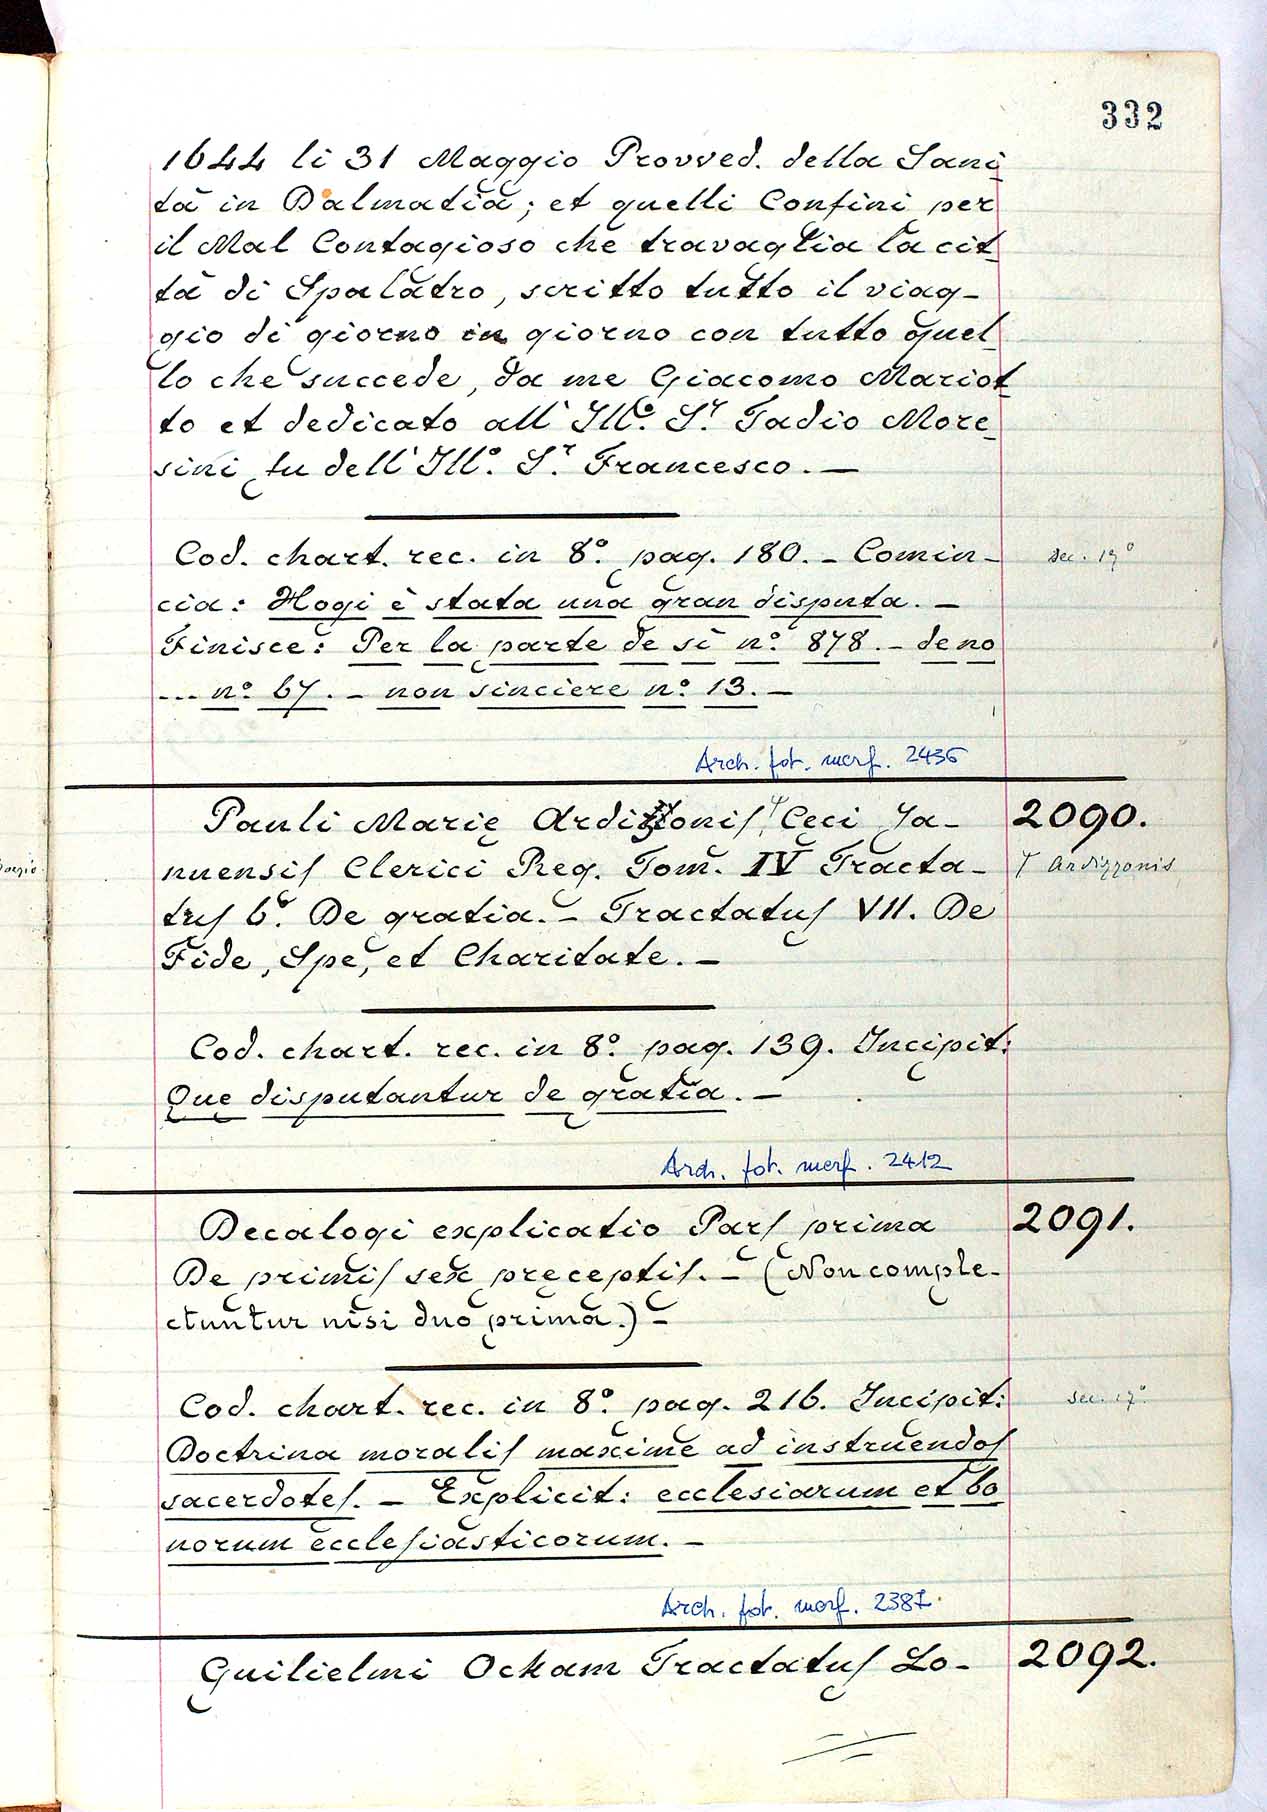 332
1644 li 31 Maggio Provved. della Sani
tà in Dalmatia; et quelli Confini per
il Mal Contagioso che travaglia la cit
tà di Spalatro, scritto tutto il viag-
gio di giorno in giorno con tutto quel
lo che succede, da me Giacomo Mariot
to et dedicato all' Ill.º S.r Tadio More
sini fu dell' Ill.º S.r Francesco. —
Cod. chart. rec. in 8.º pag. 180. - Comin-
sec. 17º
cia: Hogi è stata una gran disputa. —
Finisce: Per la parte de sì n.º 878. - de no
... n.º 67. - non sinciere n.º 13. —
Arch. fot. merf. 2436
Pauli Marię Ardizzonis Ceci Ja-
2090.
nuensis Clerici Reg. Tom. IV Tracta-
Ardizzonis
tus 6.º De gratia. - Tractatus VII. De
Fide, Spe, et Charitate. —
Cod. chart. rec. in 8.º pag. 139. Incipit:
Quę disputantur de gratia. —
Arch. fot. merf. 2412
Decalogi explicatio Pars prima
2091.
De primis sex preceptis. - (Non comple-
ctuntur nisi duo prima.) -
Cod. chart. rec. in 8.º pag. 216. Incipit:
sec. 17º
Doctrina moralis maxime ad instruendos
sacerdotes. - Explicit: ecclesiarum et bo
norum ecclesiasticorum. —
Arch. fot. merf. 2387
Guilielmi Ockam Tractatus Lo-
2092.